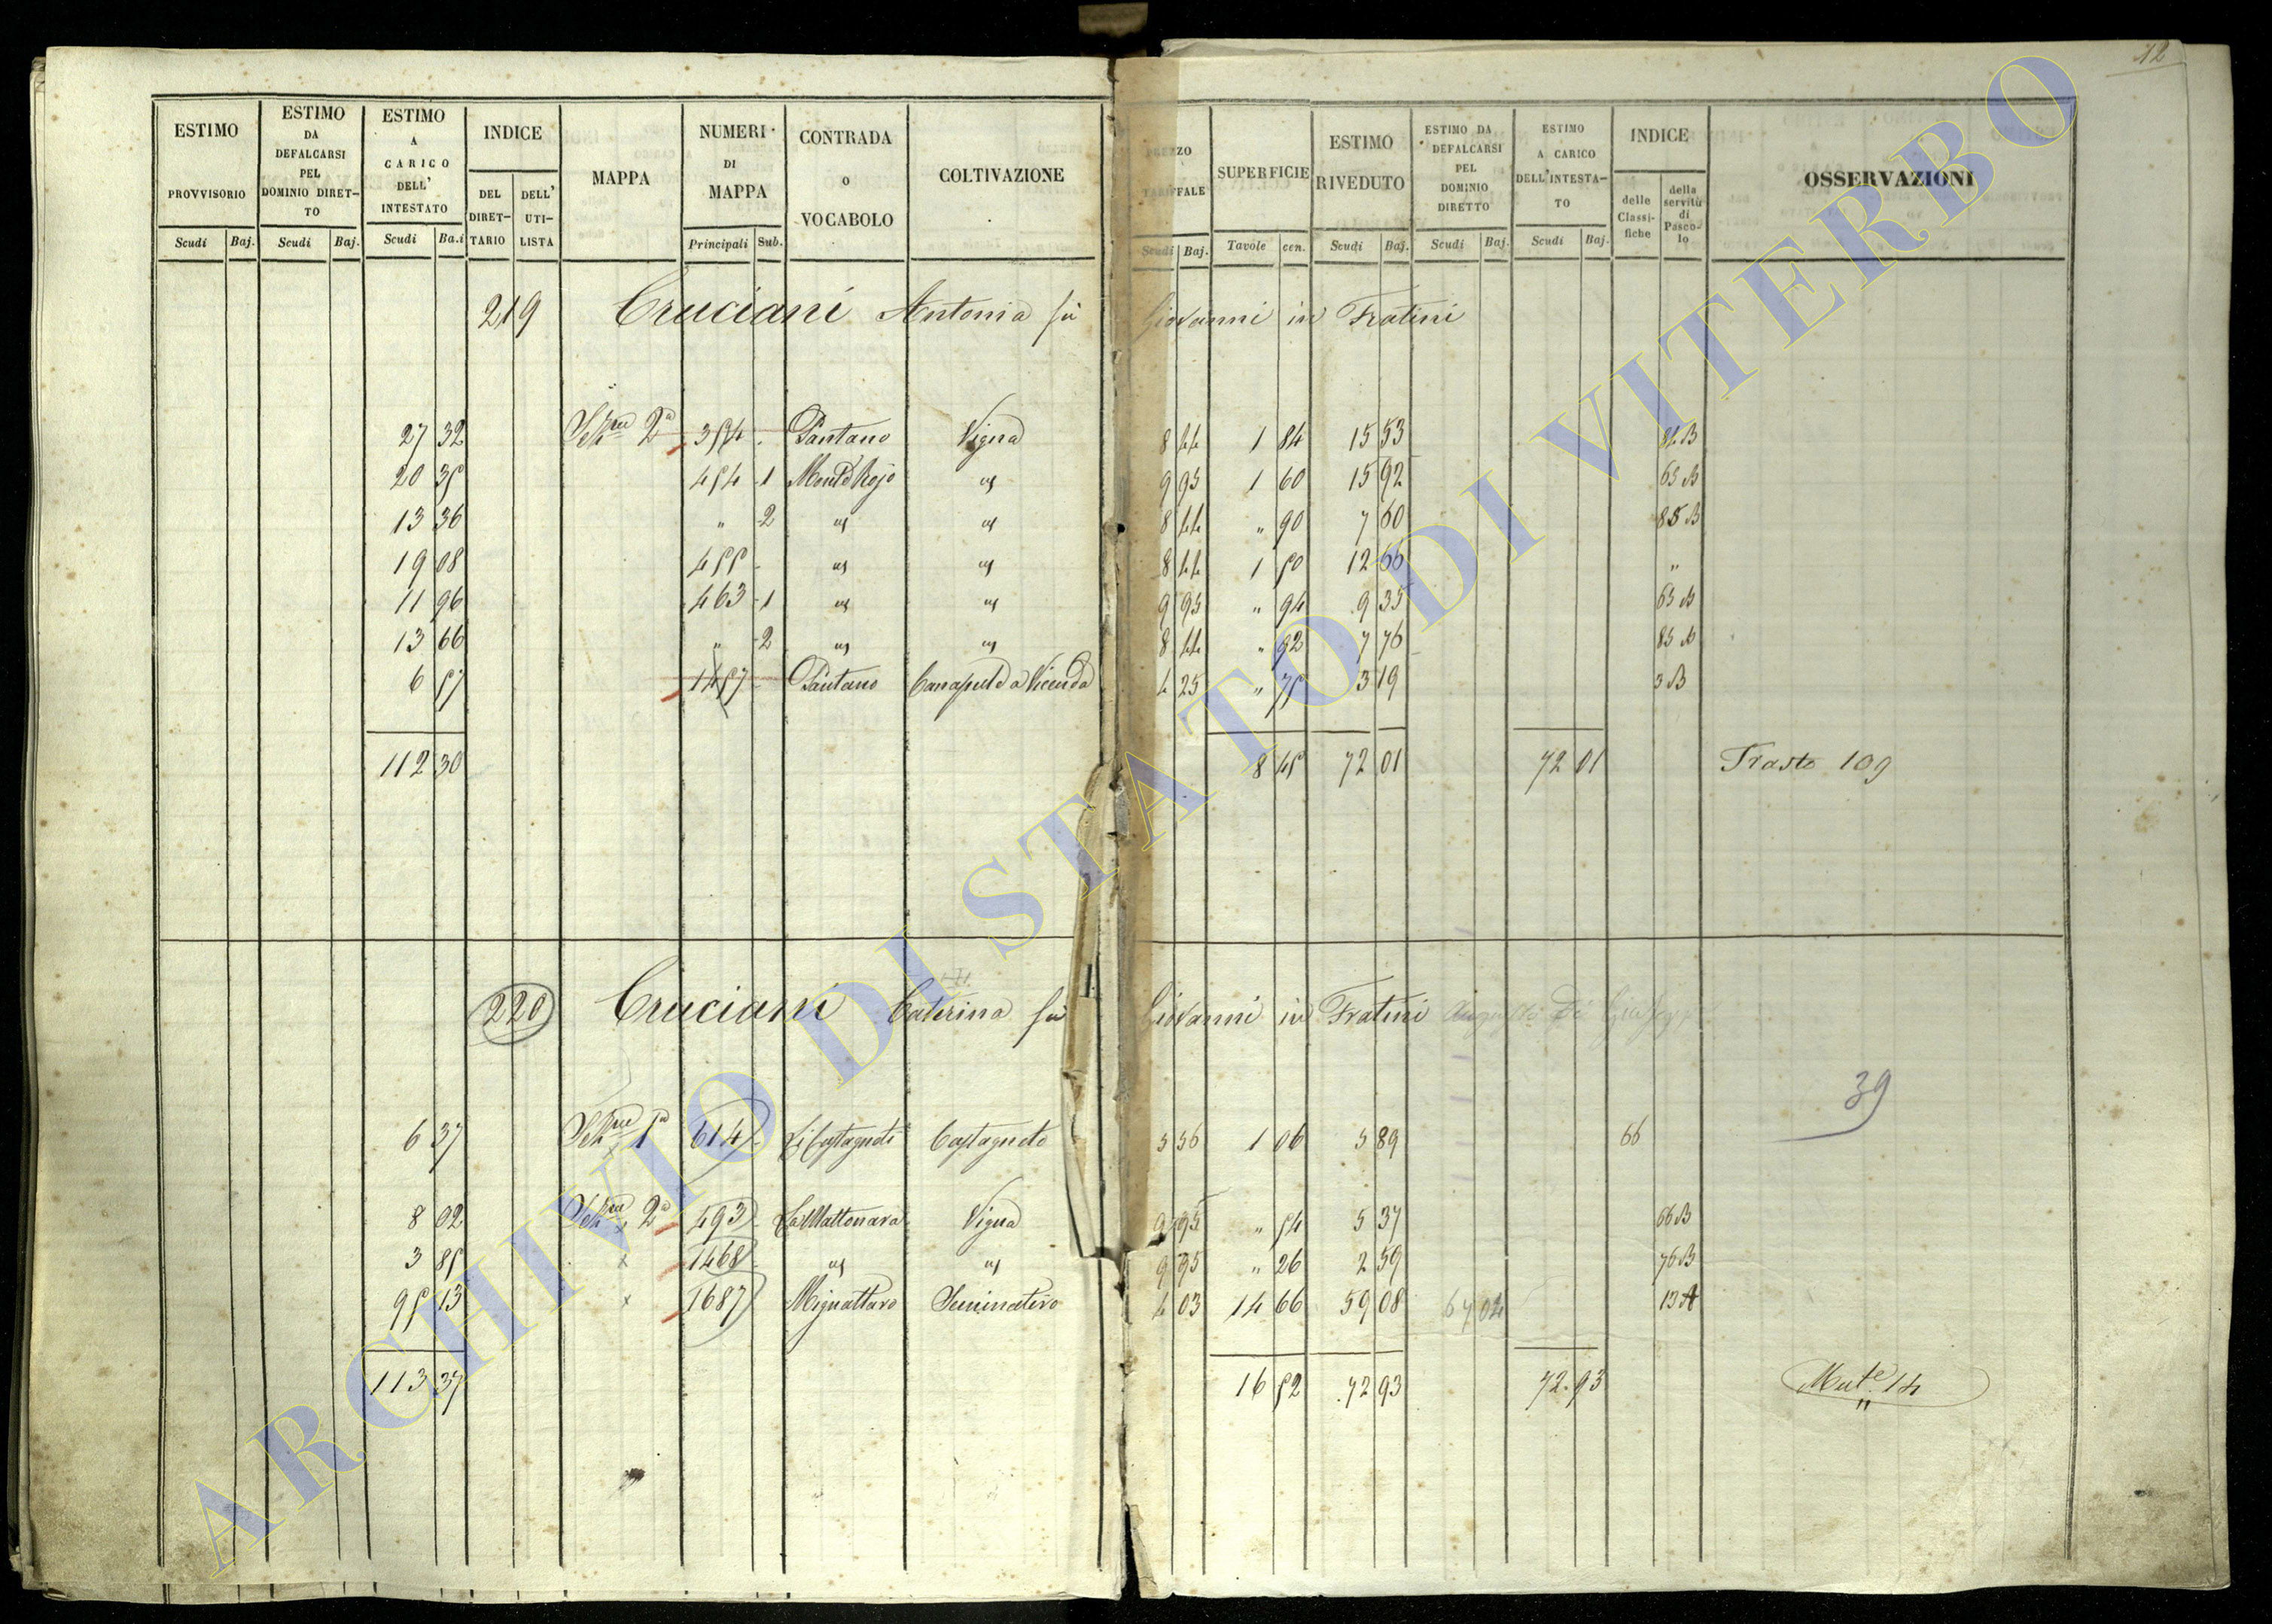 12
ESTIMO PROVVISORIO Scudi Baj.
ESTIMO DA DEFALCARSI PEL DOMINIO DIRET-TO Scudi Baj.
ESTIMO A CARICO DELL' INTESTATO Scudi Ba.i
INDICE DEL DIRET-TARIO DELL' UTI-LISTA
MAPPA
NUMERI DI MAPPA Principali Sub.
CONTRADA O VOCABOLO
COLTIVAZIONE
PREZZO TARIFFALE Scudi Baj.
SUPERFICIE Tavole cen.
ESTIMO RIVEDUTO Scudi Baj.
ESTIMO DA DEFALCARSI PEL DOMINIO DIRETTO Scudi Baj.
ESTIMO A CARICO DELL'INTESTA-TO Scudi Baj.
INDICE delle Classi-fiche della servitù di Pasco-lo
OSSERVAZIONI
219 Cruciani Antonia fu Giovanni in Fratini
27 32 Sez.ne 2a Pantano Vigna 8 44 1 84 15 53 84 B
20 35 454 1 Monte Rojo " 9 95 1 60 15 92 65 B
13 36 " 2 " " 8 44 " 90 7 60 85 B
19 08 455 " " 8 44 1 50 12 66 "
11 96 463 1 " " 9 95 " 94 9 35 65 B
13 66 " 2 " " 8 44 " 92 7 76 85 B
6 57 1457 Pantano Canapule a Vicenda 4 25 " 75 3 19 3 B
112 30 8 45 72 01 72 01 Trasto 109
220 Cruciani Caterina fu Giovanni in Fratini
39
6 37 Sez.ne 1a 614 Li Castagneti Castagneto 5 56 1 06 5 89 66
8 02 Sez.ne 2a 493 La Mattonara Vigna 9 95 " 54 5 37 66 B
3 85 1468 " " 9 95 " 26 2 59 76 B
95 13 1687 Mignattaro Seminativo 4 03 14 66 59 08 67 04 13 A
113 37 16 52 72 93 72.93 Mut.e 14
ARCHIVIO DI STATO DI VITERBO